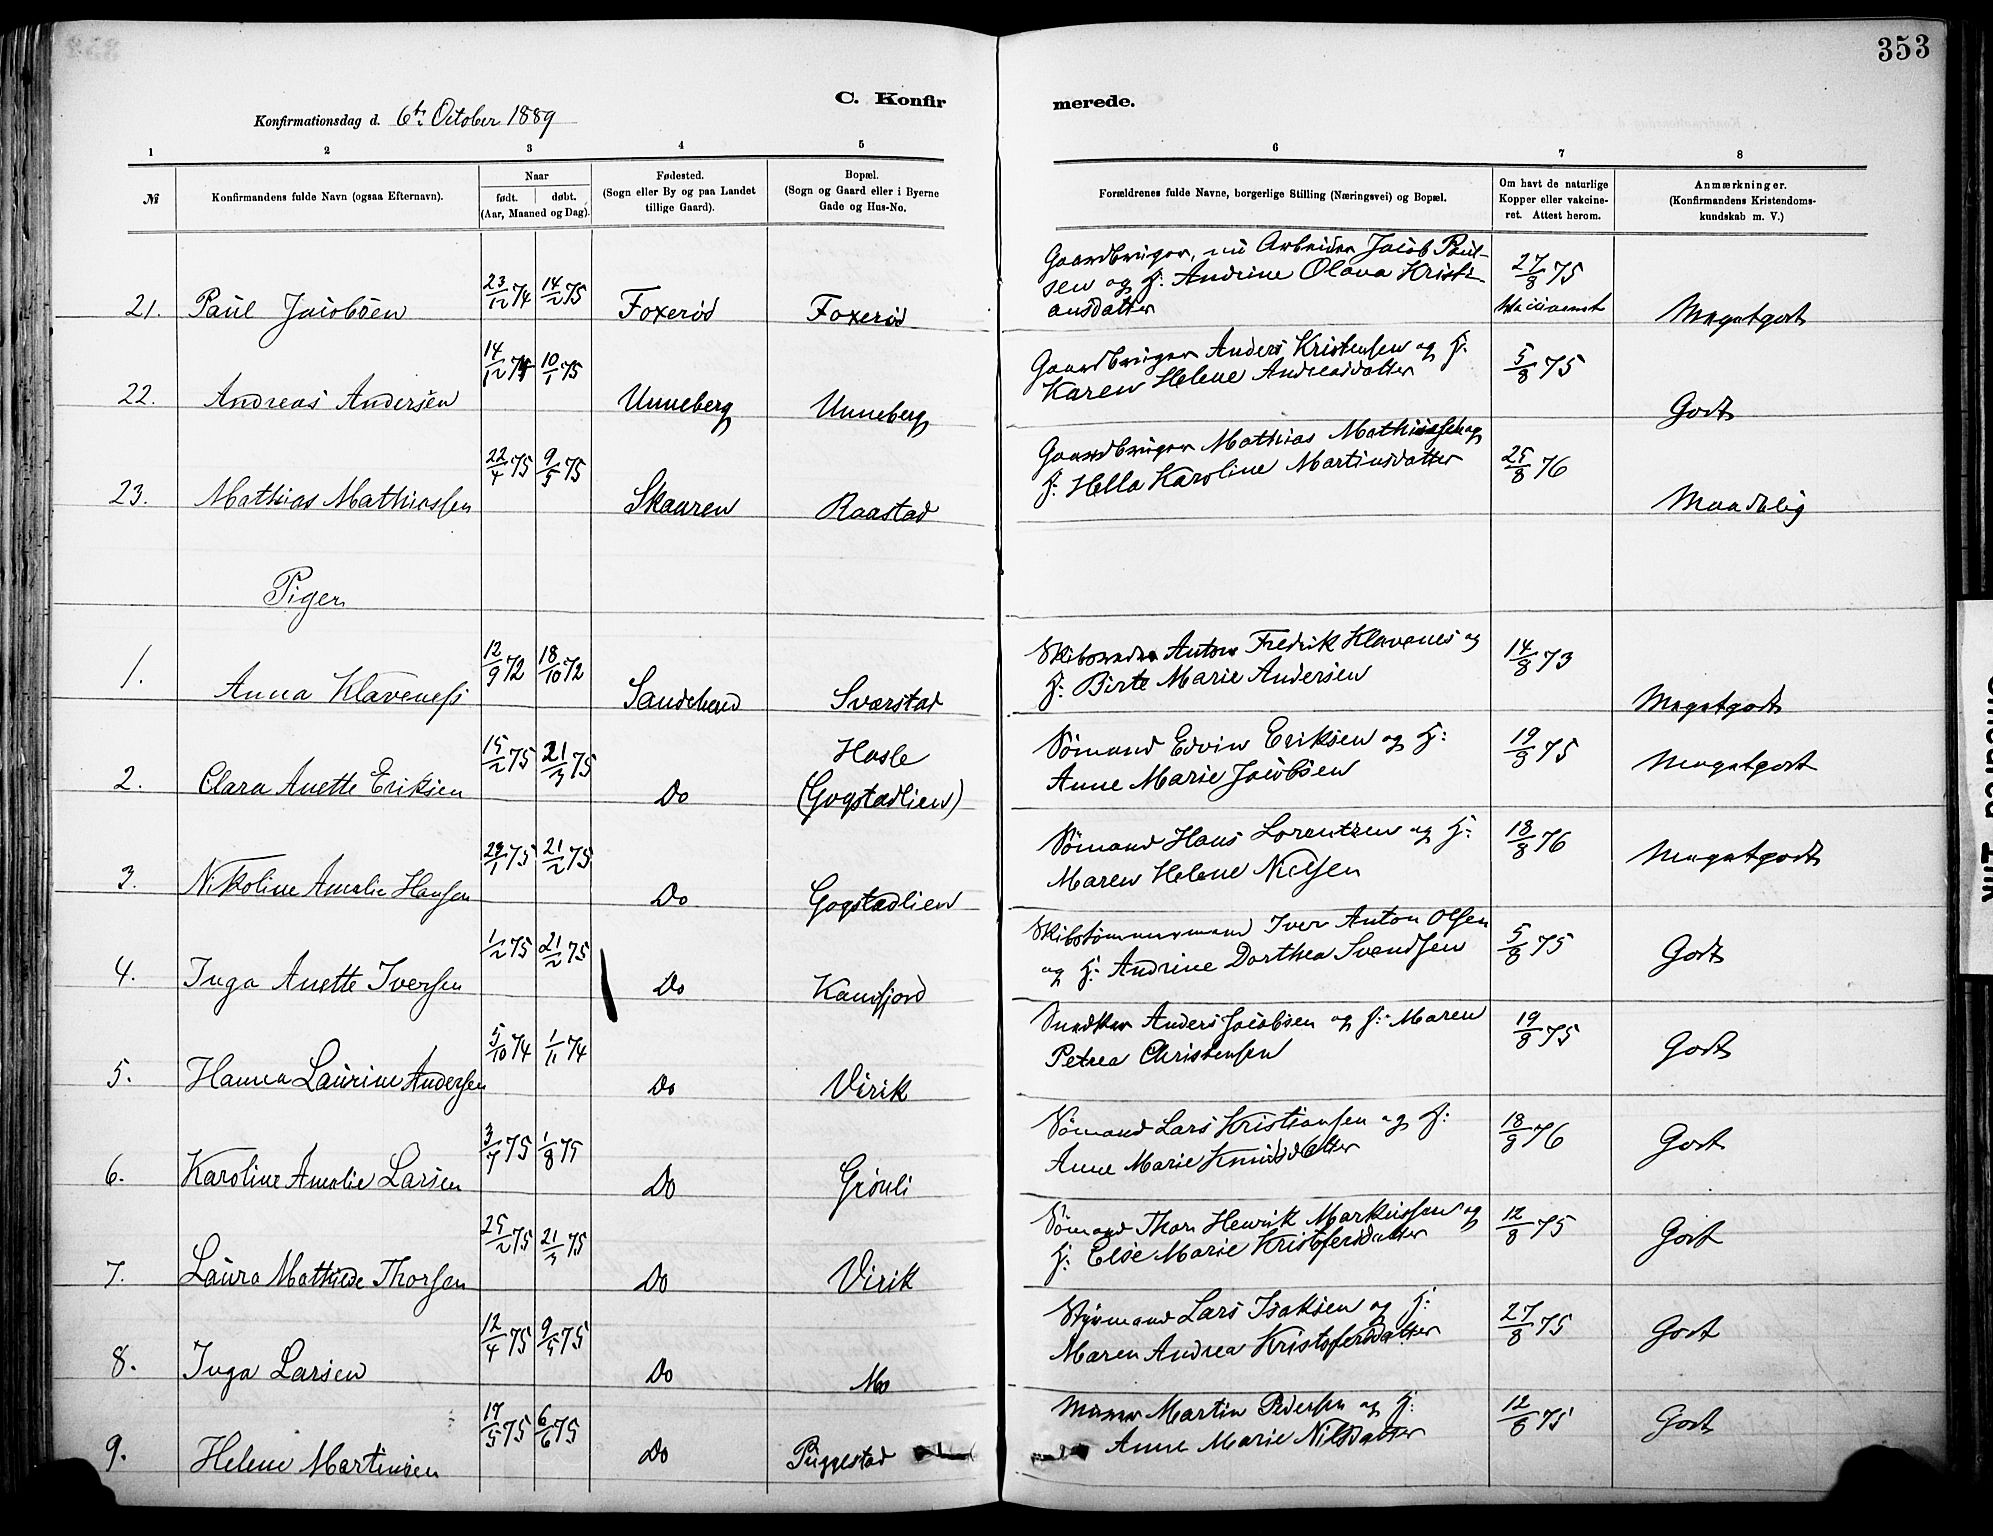 353
C. Konfirmerede.
Konfirmationsdag d. 6te October 1889
1 2 3 4 5 6 7 8
№ Konfirmandens fulde Navn (ogsaa Efternavn). Naar født. døbt. (Aar, Maaned og Dag).
Fødested. (Sogn eller By og paa Landet tillige Gaard).
Bopæl. (Sogn og Gaard eller i Byerne Gade og Hus-No.
Forældrenes fulde Navne, borgerlige Stilling (Næringsvei) og Bopæl.
Om havt de naturlige Kopper eller vakcineret. Attest herom.
Anmærkninger. (Konfirmandens Kristendomskundskab m. V.)
21. Paul Jacobsen 23/12 74 14/2 75 Foxerød Foxerød Gaardbruger, nu Arbeider Jacob Paulsen og H: Andrine Olava Kristiansdatter 27/8 75 Megetgodt
22. Andreas Andersen 14/12 74 10/1 75 Unneberg Unneberg Gaardbruger Anders Kristensen og H: Karen Helene Andreasdatter 5/8 75 Godt
23. Mathias Mathiassen 22/4 75 9/5 75 Skauren Raastad Gaardbruger Mathias Mathiassen og H: Hella Karoline Martinsdatter 25/8 76 Maadelig
Piger
1. Anna Klaveness 12/9 72 18/10 72 Sandeherred Sværstad Skibsreder Anton Fredrik Klavenes og H: Birte Marie Andersen 14/8 73 Megetgodt
2. Clara Anette Eriksen 15/2 75 21/3 75 Do Hasle (Gogstadlien) Sømand Edvin Eriksen og H: Anne Marie Jacobsen 19/8 75 Megetgodt
3. Nikoline Amalie Hansen 29/1 75 21/2 75 Do Gogstadlien Sømand Hans Lorentzen og H: Maren Helene Nielsen 18/8 76 Megetgodt
4. Inga Anette Iversen 1/2 75 21/2 75 Do Kamfjord Skibstømmermand Iver Anton Olsen og H: Andrine Dorthea Svendsen 5/8 75 Godt
5. Hanna Laurine Andersen 5/10 74 1/11 74 Do Virik Snedker Anders Jacobsen og H: Maren Petrea Christensen 19/8 75 Godt
6. Karoline Amalie Larsen 3/7 75 1/8 75 Do Grønli Sømand Lars Kristiansen og H: Anne Marie Knudsdatter 18/8 76 Godt
7. Laura Mathilde Thorsen 25/2 75 21/3 75 Do Virik Sømand Thor Henrik Markussen og H: Else Marie Kristofersdatter 12/8 75 Godt
8. Inga Larsen 12/4 75 9/5 75 Do Mo Styrmand Lars Isaksen og H: Maren Andrea Kristofersdatter 27/8 75 Godt
9. Helene Martinsen 17/5 75 6/6 75 Do Puggestad Murer Martin Pedersen og H: Anne Marie Nilsdatter 12/8 75 Godt